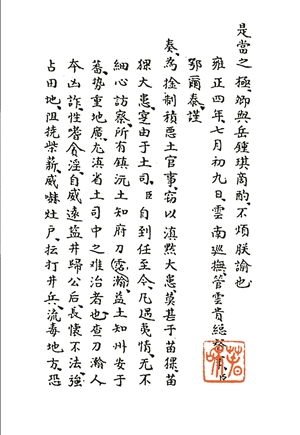 是當之極、卿與岳鍾琪商酌、不煩朕諭也、
雍正四年七月初九日、雲南巡撫、管雲貴總督事、臣
鄂爾泰、謹
奏、爲擒制積惡土官事、竊以滇黔大患、莫甚于苗猓、苗
猓大患、實由于土司、臣自到任至今、凡遇夷情、无不
細心訪察、所有鎮沅土知府刀瀚、霑益土知州安于
蕃、勢重地廣、尤滇省土司中之难治者也、查刀瀚人
本凶詐、性嗜貪淫、自威遠盐井歸公后、長懷不法、強
占田地、阻挠柴薪、威嚇灶户、抎打井兵、流毒地方、恐